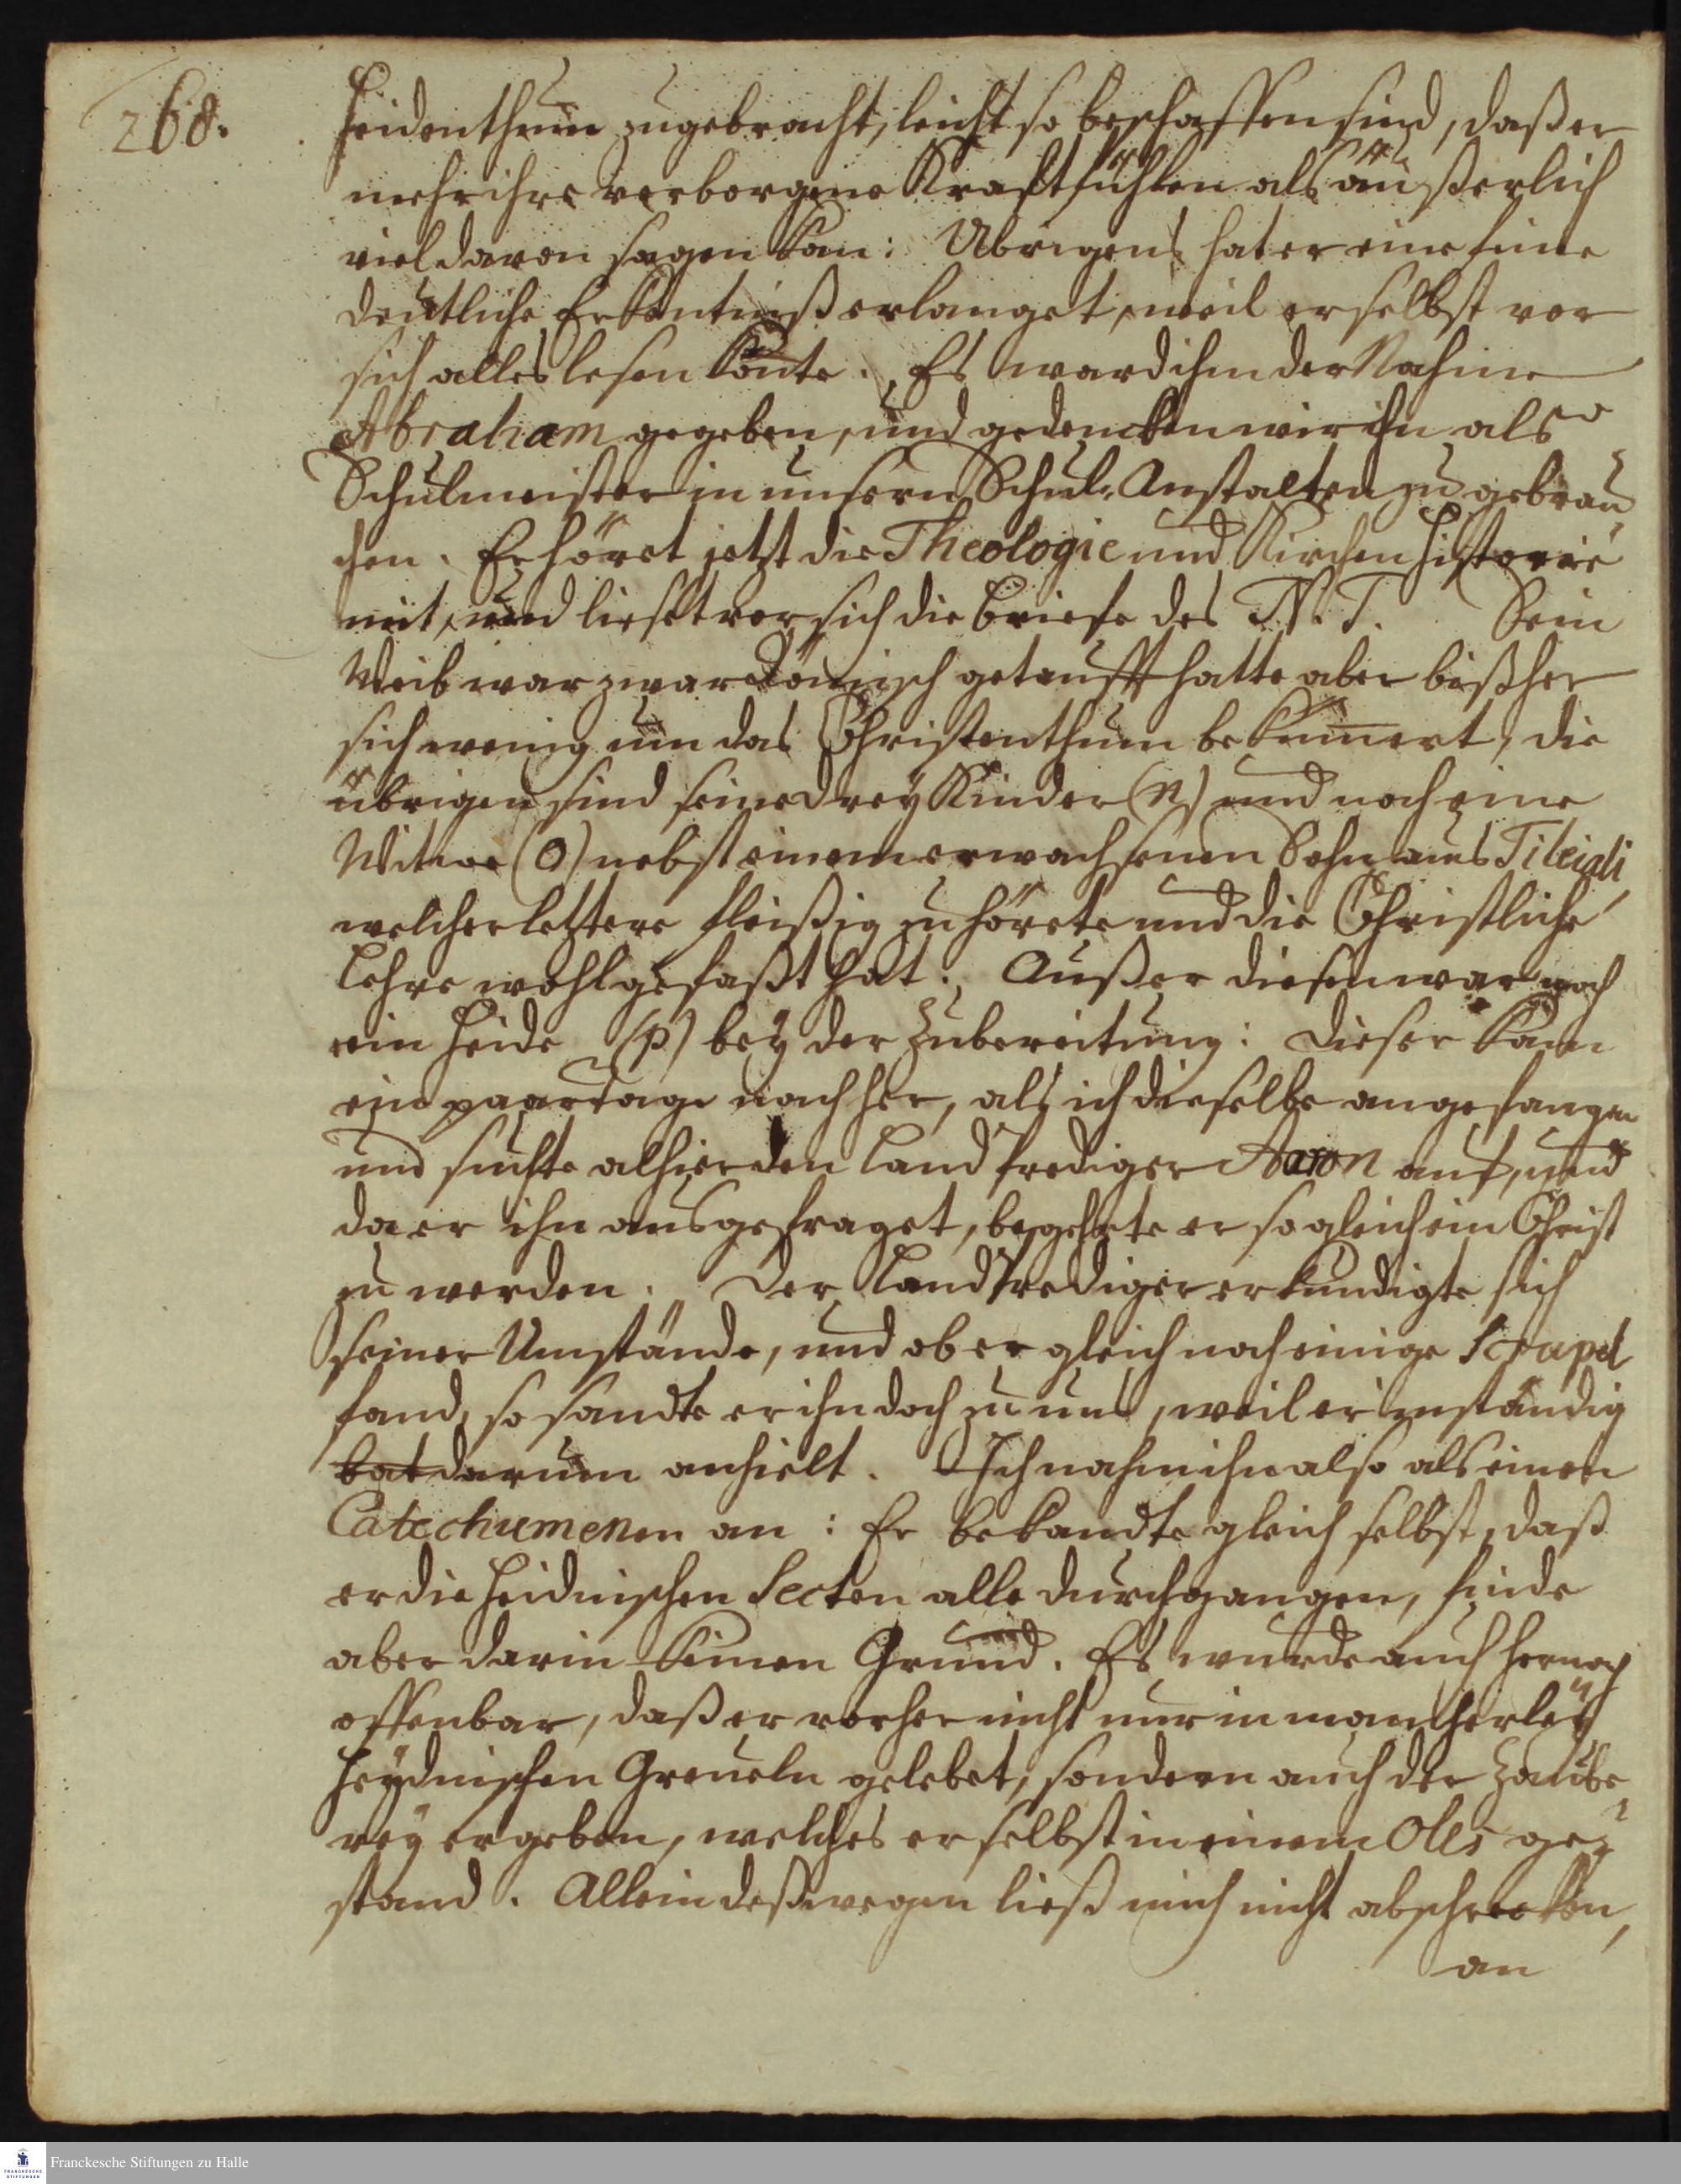 268.
Heidenthum zugebracht, leicht so beschaffen sind, daß er
mehr ihre verborgene Krafft fühlen als äußerlich
viel davon sagen kan: Ubrigens hat er eine feine
deutliche Erkentniß erlanget, weil er selbst vor
sich alles lesen konte. Es ward ihm der Nahme
Abraham gegeben, und gedencken wir ihn als
Schulmeister in unsern Schul-Anstalten zu gebrau-
chen. Er höret jetzt die Theologie und Kirchen Historie
mit, und lieset vor sich die Briefe des N. T. Sein
Weib war zwar Römisch getaufft hatte aber bißher
sich wenig um das Christenthum bekümert, die
übrigen sind seine drey Kinder (n) und noch eine
Witwe (o) nebst einem erwachsenen Sohn aus
welcher letztere fleißig zuhörete und die Christliche
Lehre wohl gefaßt hat. Außer diesen war noch
ein Heide (p) bey der Zubereitung: Dieser kam
ein paar Tage nachher, als ich dieselbe angefangen
und suchte alhier den Land Prediger Aaron auf, und
da er ihn ausgefraget, begehrte er sogleich ein Christ
zu werden. Der Land Prediger erkundigte sich
seiner Umstände, und ob er gleich noch einige Scrupel
fand, so sandte er ihn doch zu uns, weil er inständig
bat darum anhielt. Ich nahm ihn also als einen
Catechumenen an: Er bekandte gleich selbst, daß
er die Heidnischen Secten alle durchgangen, finde
aber darin keinen Grund. Es wurde auch hernach
offenbar, daß er vorher nicht nur in mancherley
Heydnischen Greueln gelebet, sondern auch der Zaube-
rey ergeben, welches er selbst in einem Oles ge-
stand. Allein deßwegen ließ mich nicht abschrecken,
an
Franckesche Stiftungen zu Halle
FRANCKESCHE STIFTUNGEN